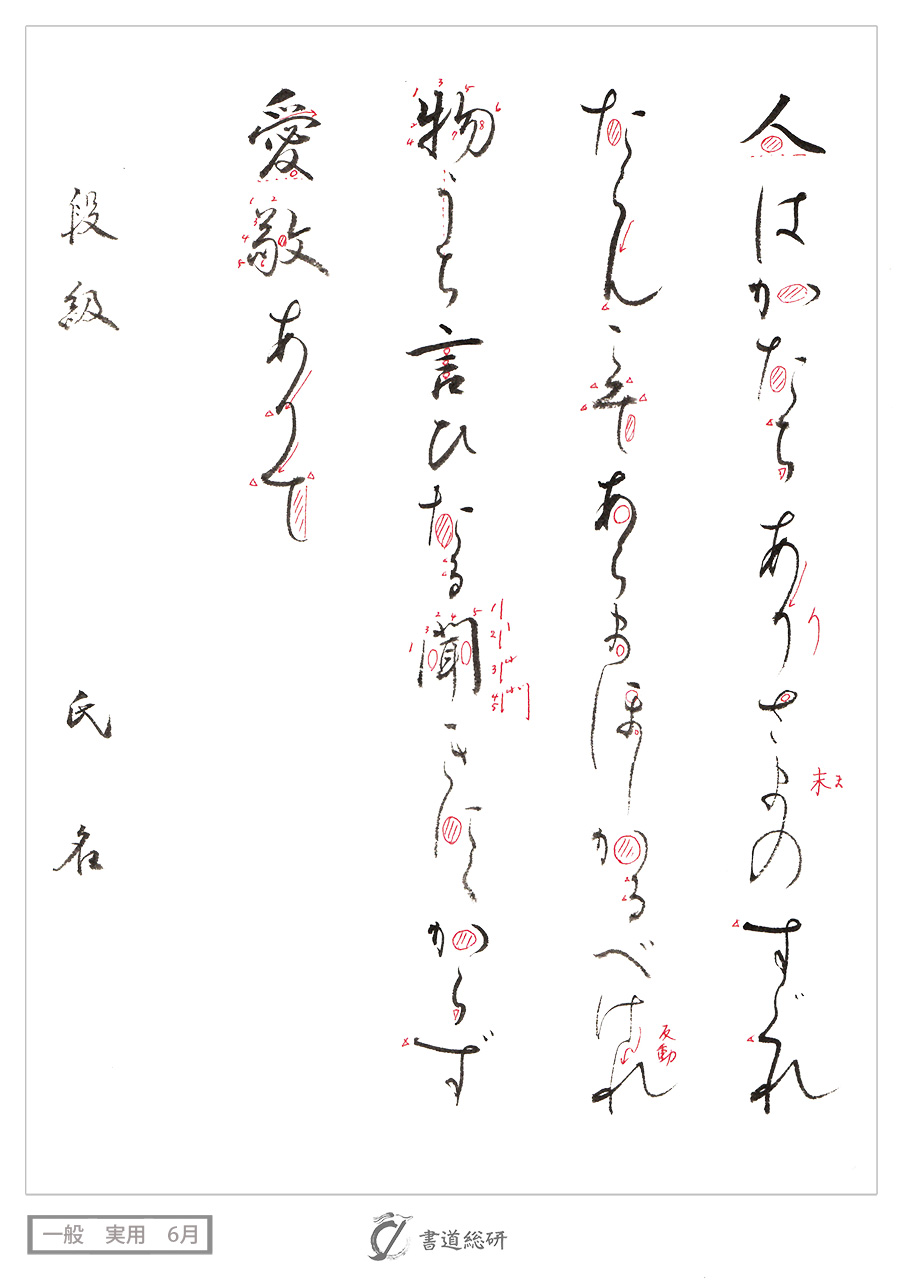 人はかたちありさまのすぐれ
り
末ま
たらんこそあらまほしかるべけれ
反動
物うち言ひたる聞きにくからず
愛敬ありて
段級　氏名
一般　実用　6月
書道総研